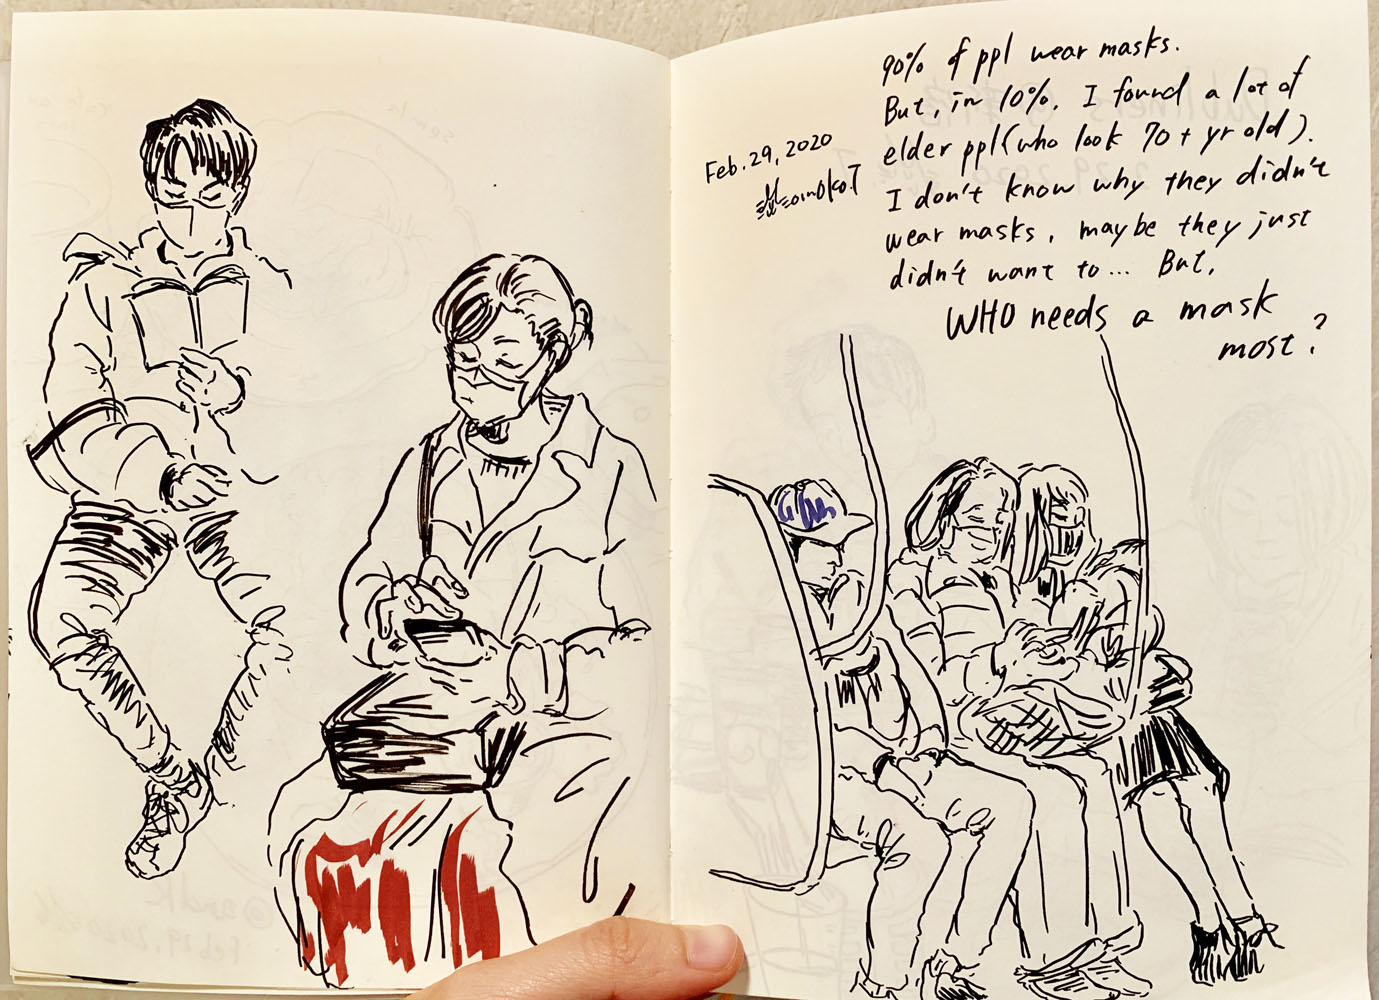 90% of ppl wear masks.
But, in 10%, I found a lot of
elder ppl (who look 70 + yr old).
I don't know why they didn't
wear masks, maybe they just
didn't want to... But,
WHO needs a mask
most?
Feb. 29, 2020